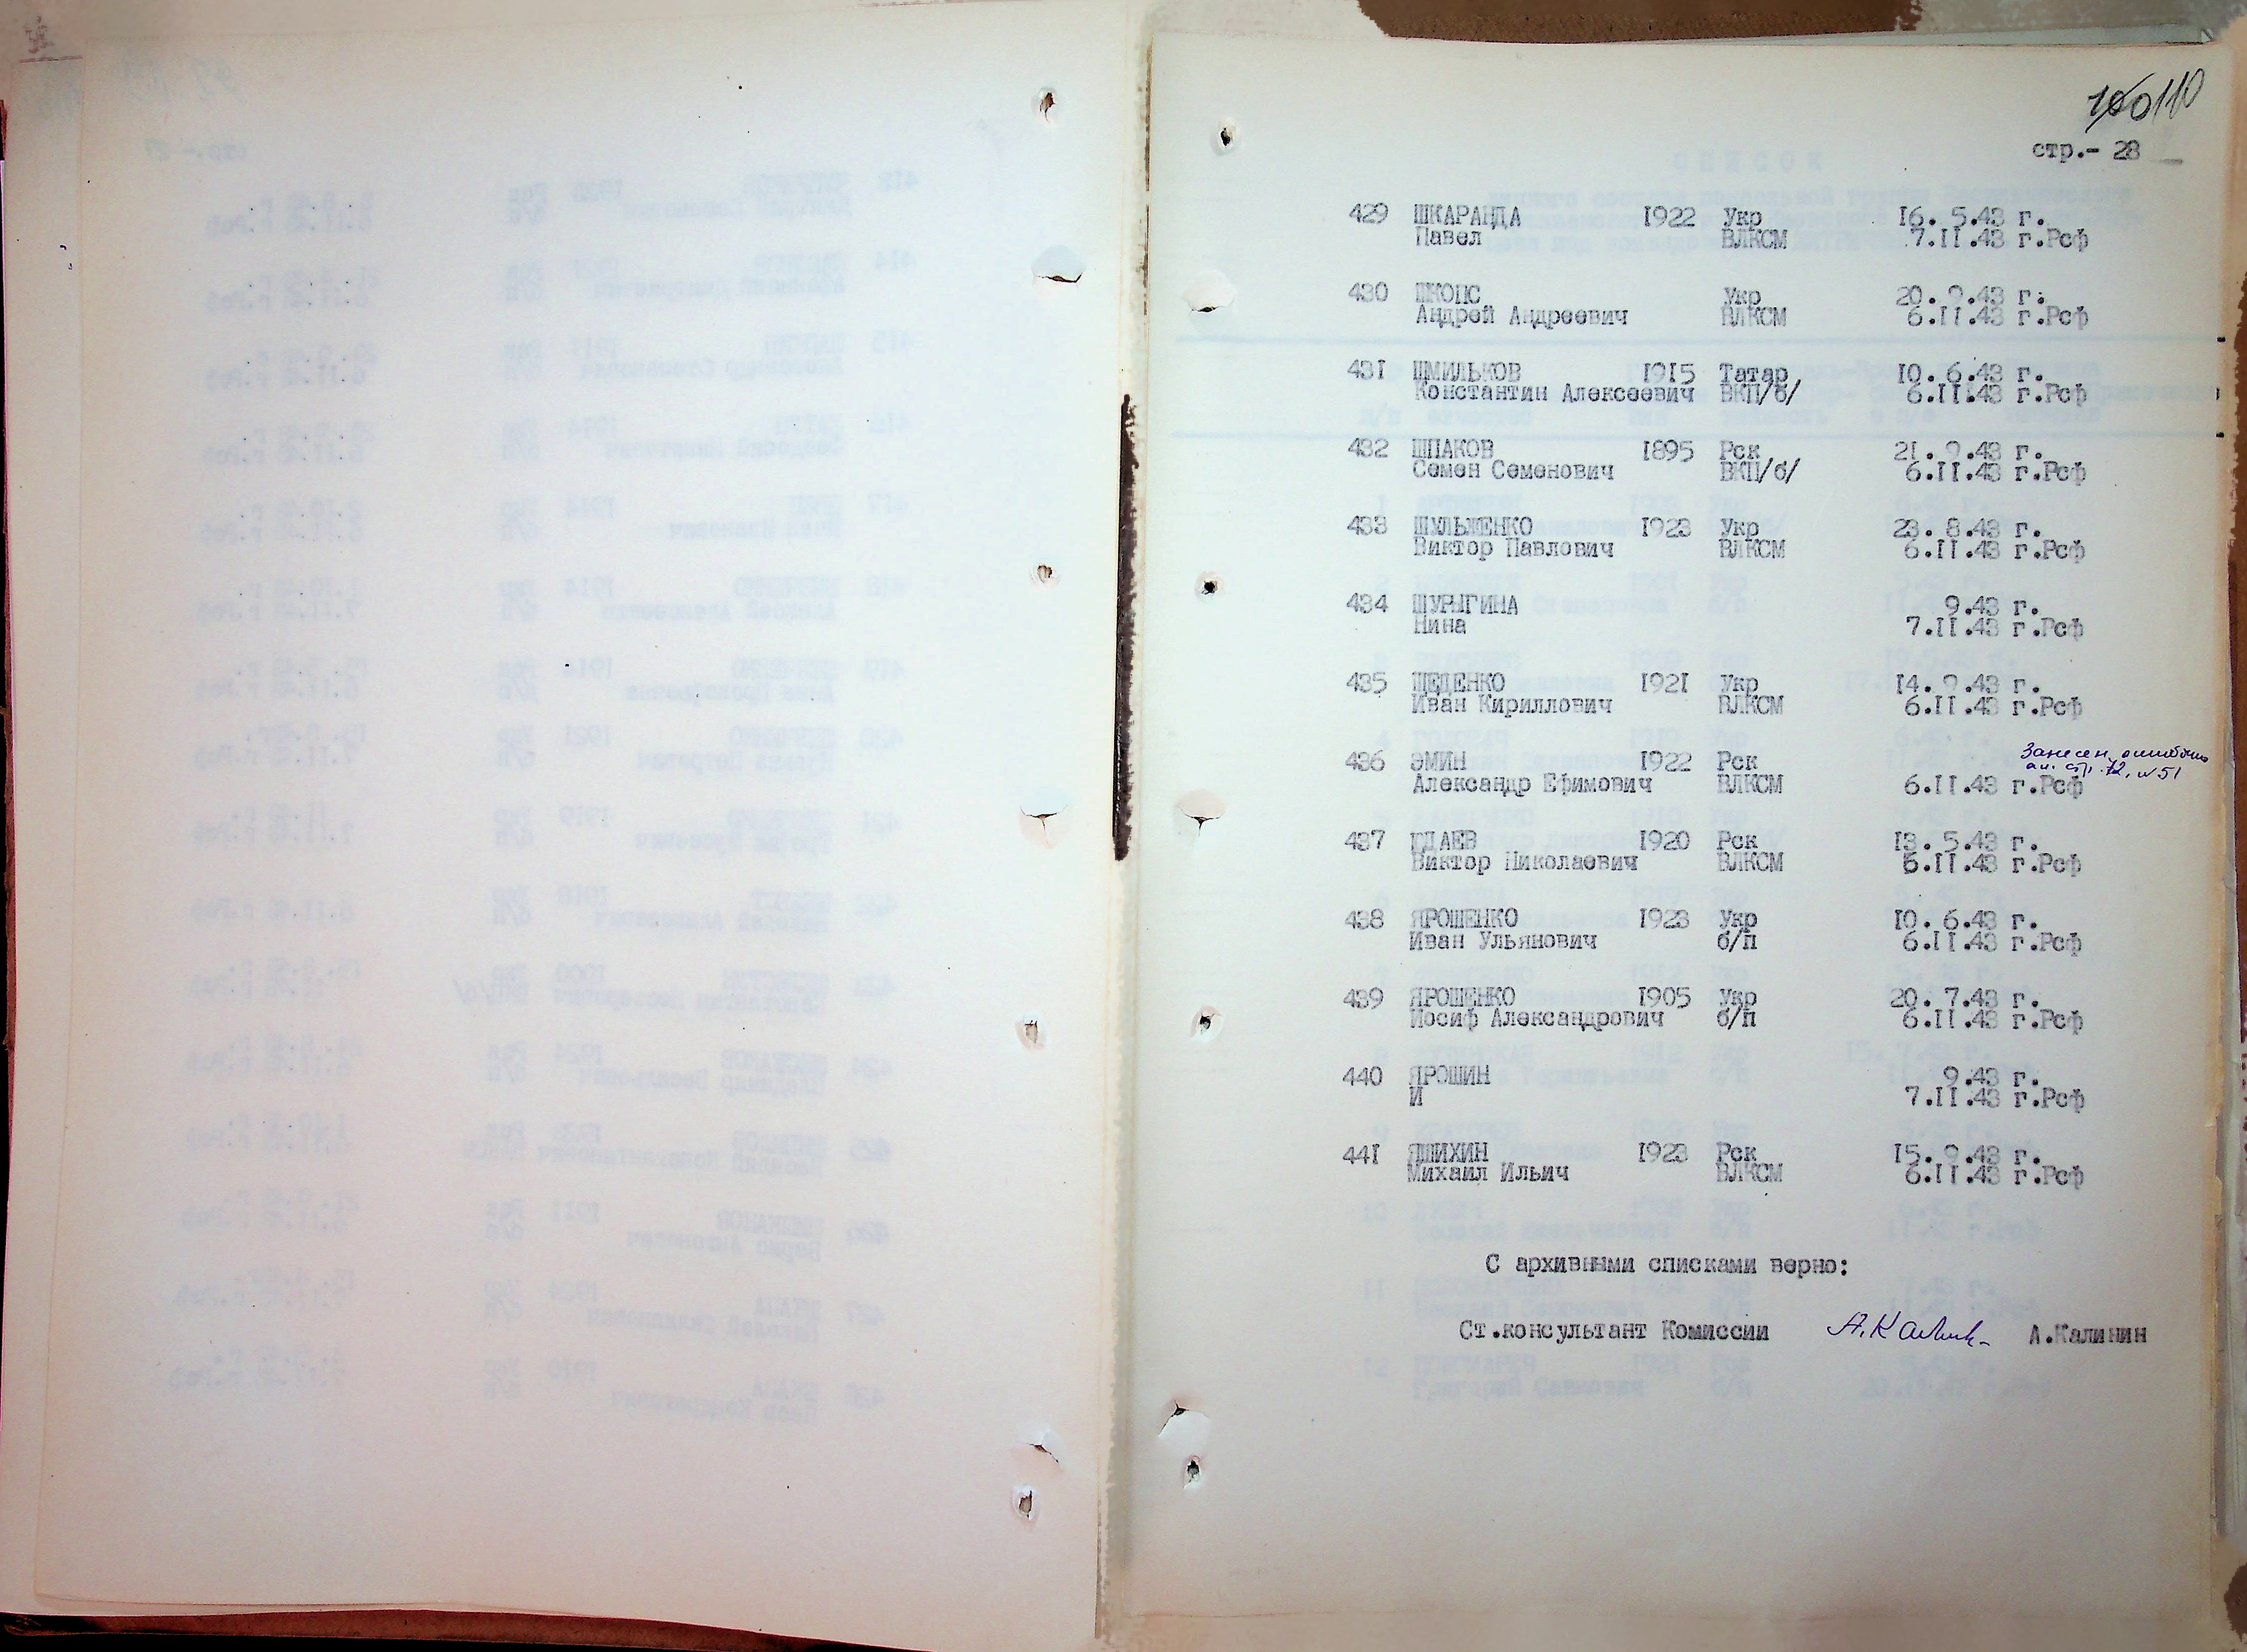 110
стр.- 28
429 ШКАРАНДА 1922 Укр 16. 5.43 г.
Павел ВЛКСМ 7.II.43 г.Рсф
430 Укр 20. 9.43 г.
Андрей Андреевич ВЛКСМ 6.II.43 г.Рсф
431 ШМИЛЬКОВ 1915 Татар 10. 6.43 г.
Константин Алексеевич ВКП/б/ 6.II.43 г.Рсф
432 ШПАКОВ 1895 Рск 21. 9.43 г.
Семен Семенович ВКП/б/ 6.II.43 г.Рсф
433 ШУЛЬЖЕНКО 1923 Укр 23. 8.43 г.
Виктор Павлович ВЛКСМ 6.II.43 г.Рсф
434 ШУРЫГИНА 9.43 г.
Нина 7.II.43 г.Рсф
435 ЩЕДЕНКО 1921 Укр 14. 9.43 г.
Иван Кириллович ВЛКСМ 6.II.43 г.Рсф
436 ЭМИН 1922 Рск Занесен ошибочно
Александр Ефимович ВЛКСМ 6.II.43 г.Рсф стр. 12, №51
437 1920 Рск 13. 5.43 г.
Виктор Николаевич ВЛКСМ 6.II.43 г.Рсф
438 ЯРОШЕНКО 1923 Укр 10. 6.43 г.
Иван Ульянович б/п 6.II.43 г.Рсф
439 ЯРОШЕНКО 1905 Укр 20. 7.43 г.
Иосиф Александрович б/п 6.II.43 г.Рсф
440 ЯРОШИН 9.43 г.
И 7.II.43 г.Рсф
441 ЯШИХИН 1923 Рск 15. 9.43 г.
Михаил Ильич ВЛКСМ 6.II.43 г.Рсф
С архивными списками верно:
Ст.консультант Комиссии А.Калинин